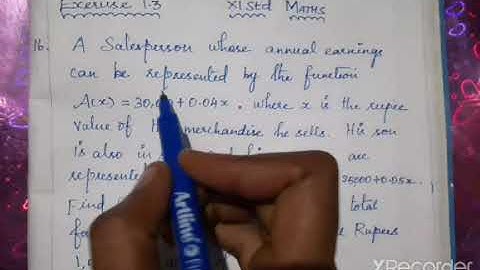 Exercise 1.3 XI std MATHS
16. A Salesperson whose annual earnings
can be represented by the function
A(x) = 30,0 +0.04x, where x is the rupee
value of merchandise he sells. His son
is also in are
represente 25000+0.05x.
Find total
fa Rupees
1,
Artline
XRecorder